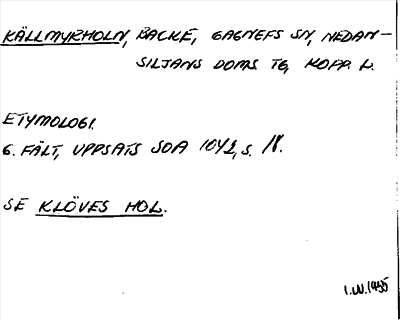 KÄLLMYRHOLN, BACKE, GAGNEFS SN, NEDAN-
SILJANS DOMS TG, KOPP. L.
ETYMOLOGI.
G. FÄLT, UPPSATS SOA 1042, S. 18.
SE KLÖVES HOL.
I.W.1955